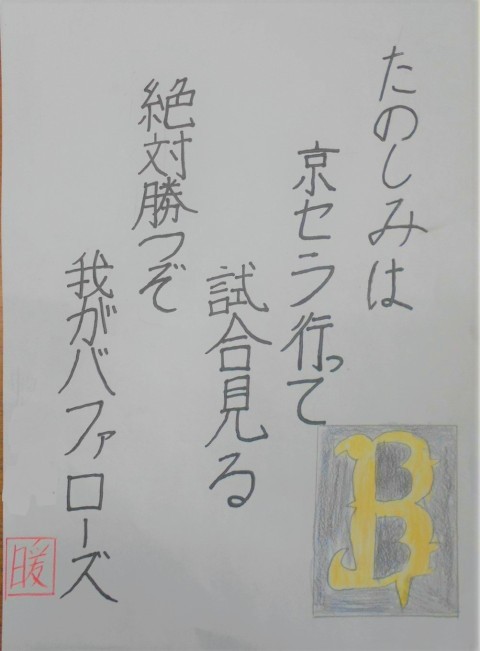 たのしみは
京セラ行って
試合見る
絶対勝つぞ
我がバファローズ
暖
B